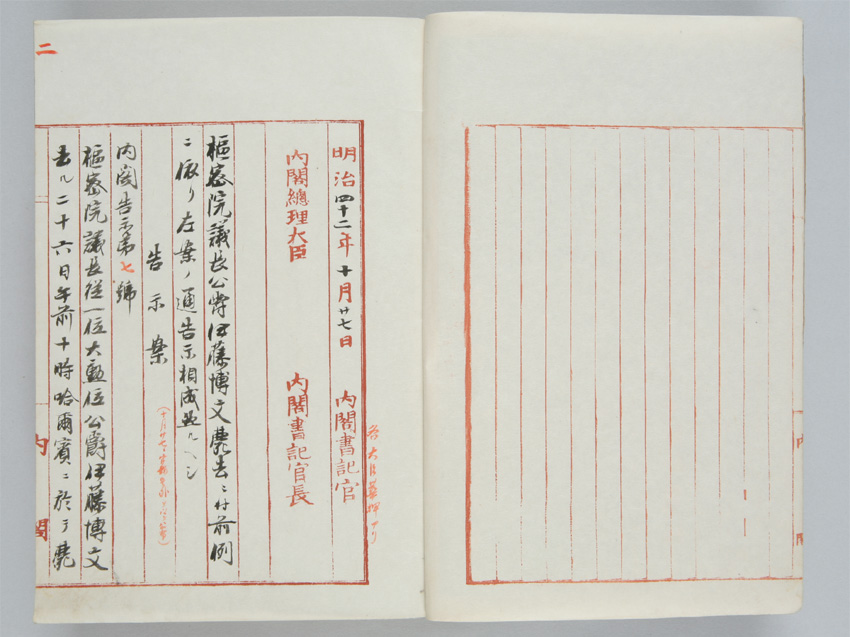 明治四十二年十月廿七日
内閣書記官
内閣總理大臣
内閣書記官長
樞密院議長公爵伊藤博文薨去ニ付前例
ニ依リ左案ノ通告示相成然ルヘシ
告示案
内閣告示第七號
樞密院議長從一位大勲位公爵伊藤博文
去ル二十六日午前十時哈爾賓ニ於テ薨
二
内閣
内閣